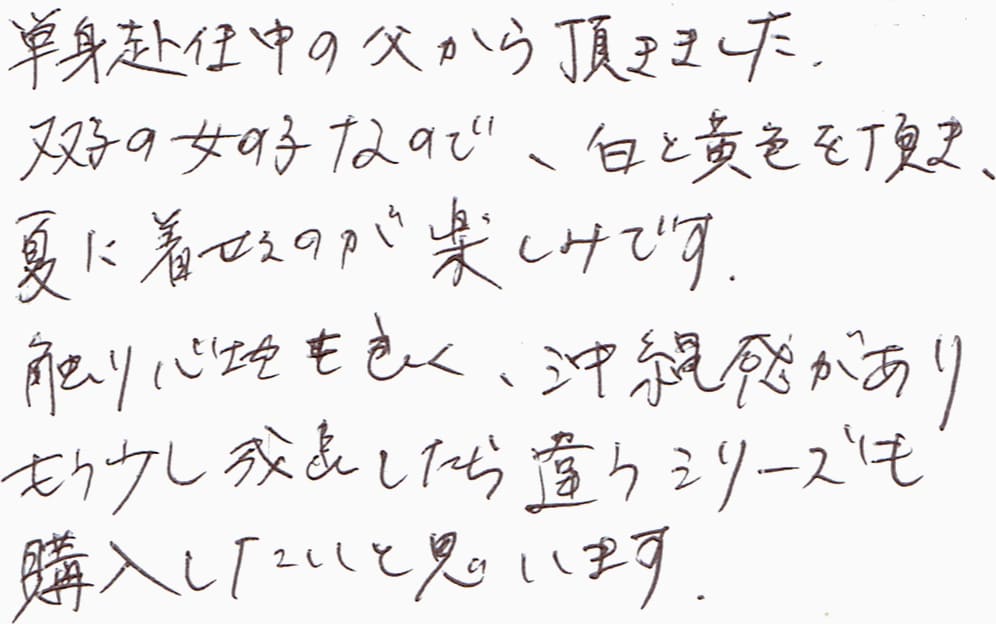 単身赴任中の父から頂きました.
双子の女の子なので、白と黄色を頂き、
夏に着せるのが楽しみです.
触り心地も良く、沖縄感があり
もう少し成長したら違うシリーズも
購入したいと思います.